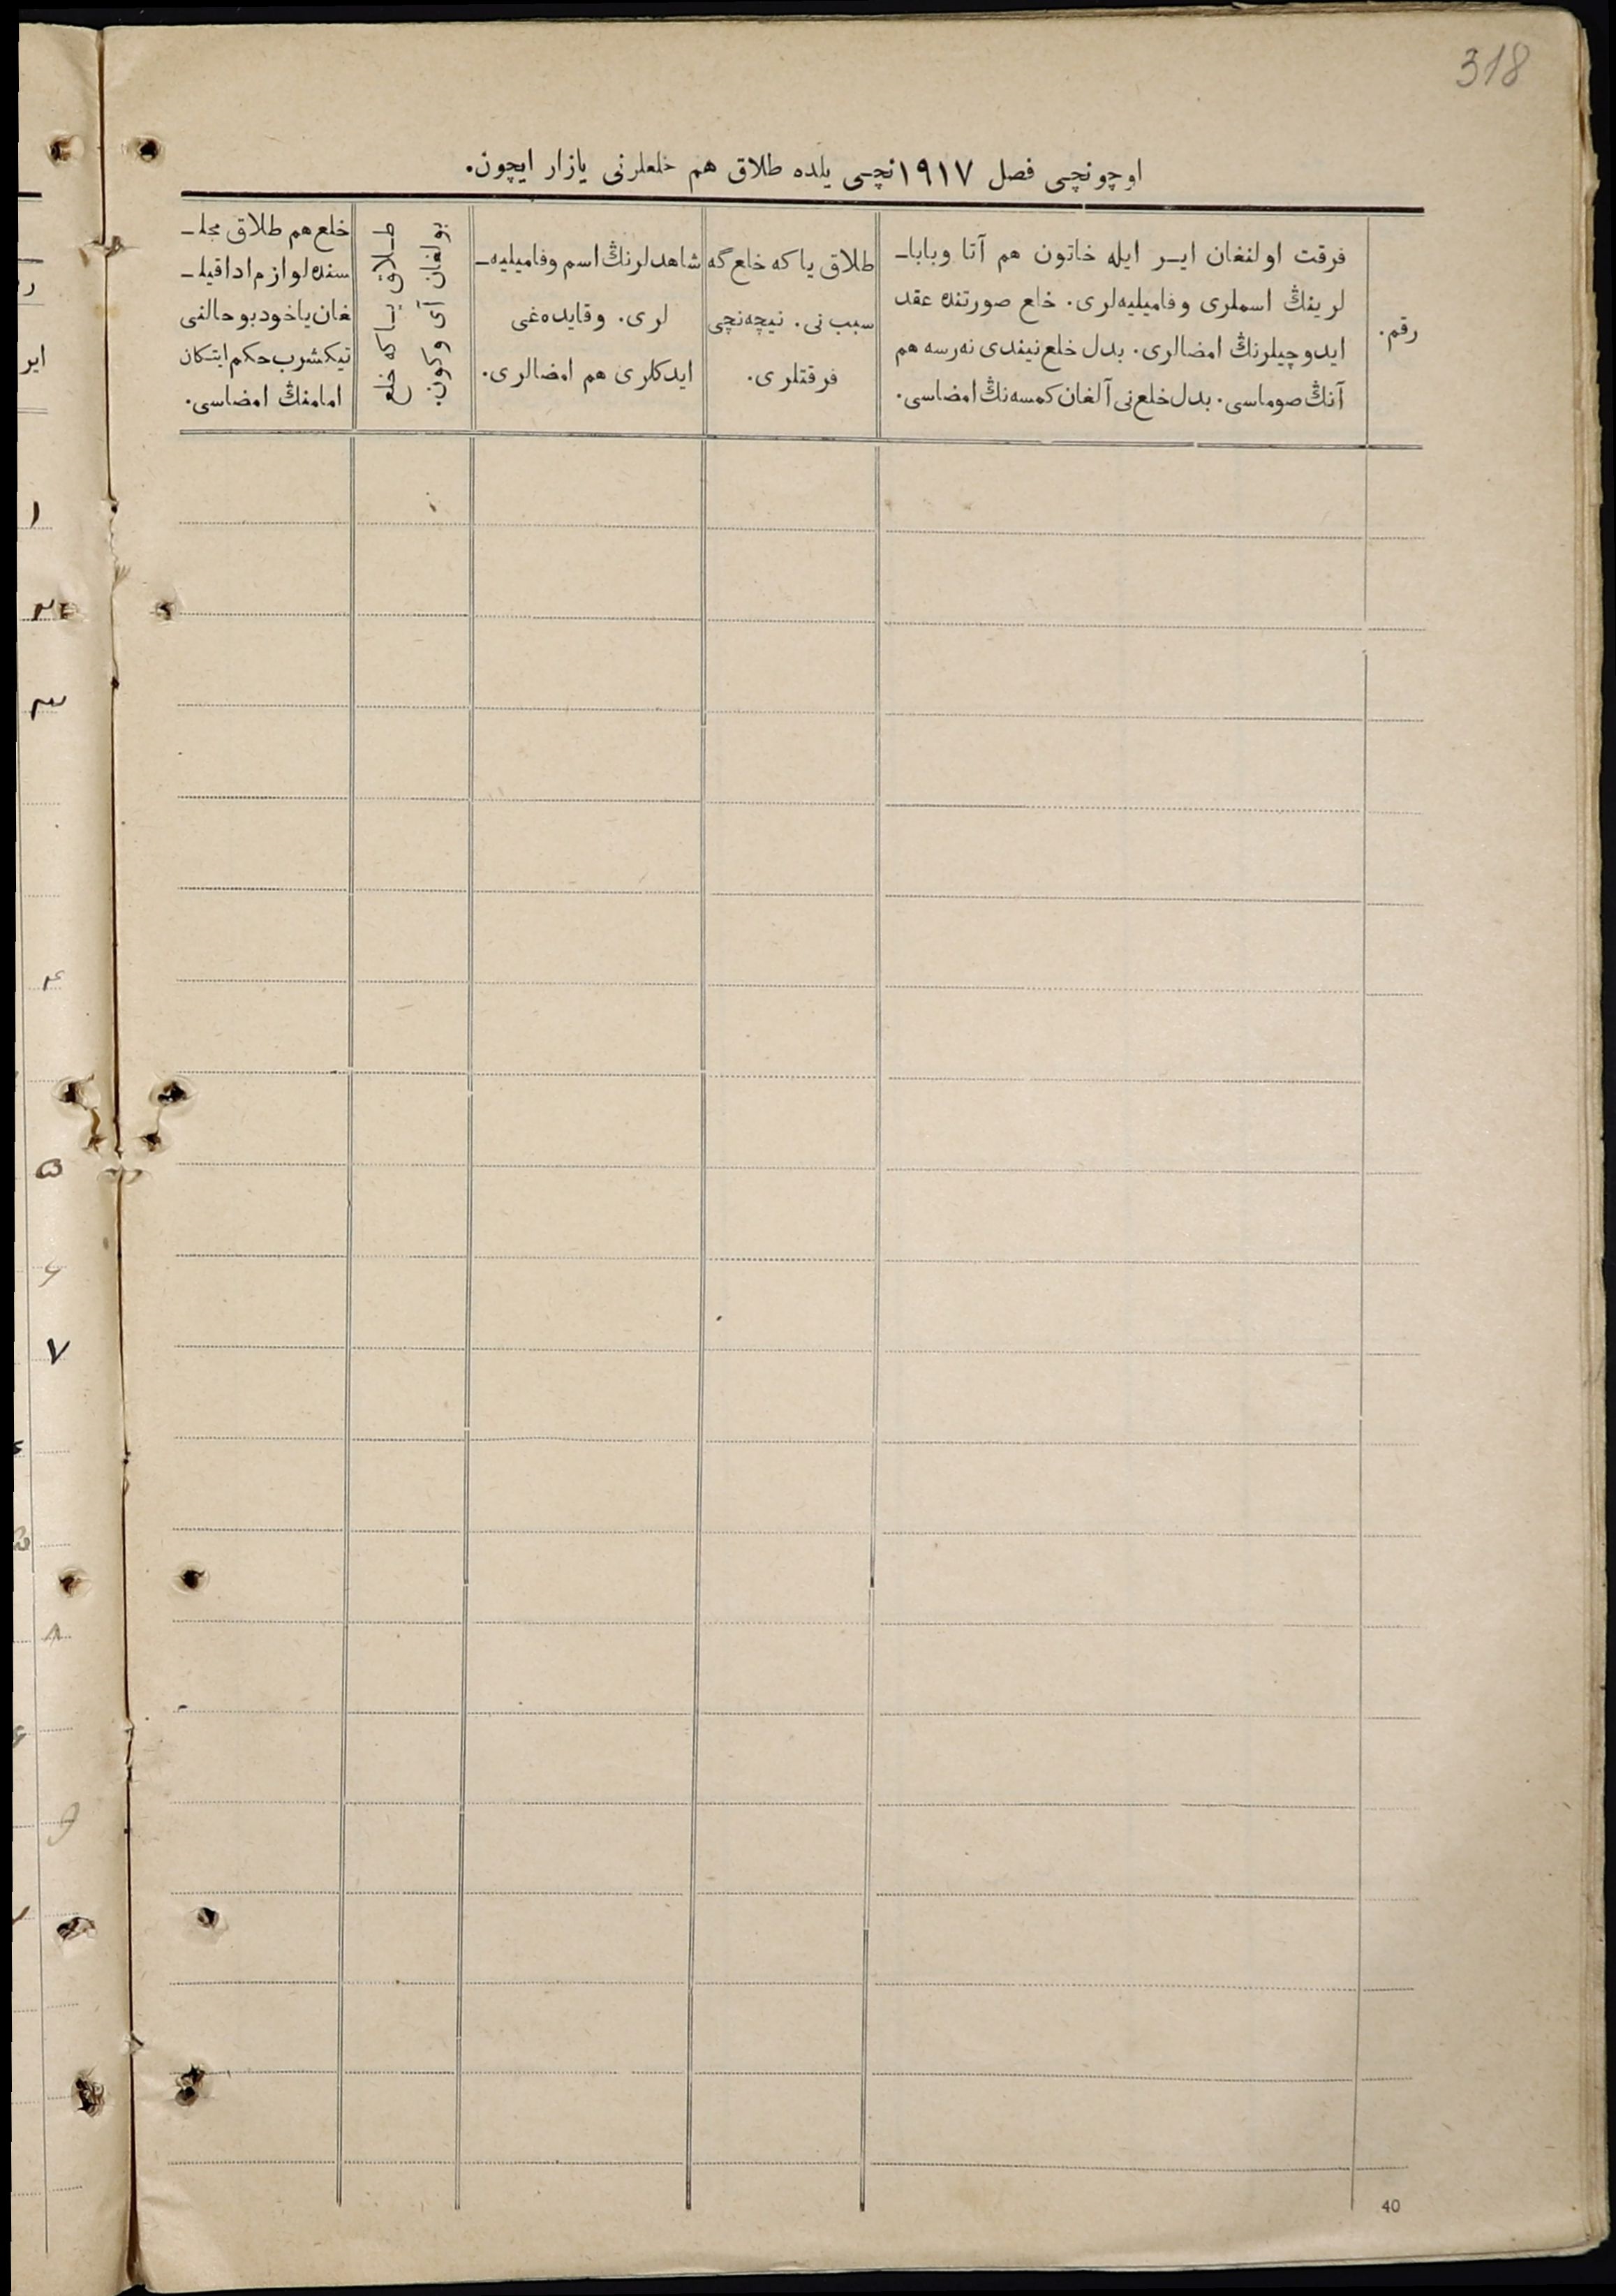 318
اوچونچی فصل ۱۹۱۷نچی یلده طلاق هم خلعلرنی یازار ایچون.
رقم.
فرقت اولنغان ایـر ایله خاتون هم آتا وباباـ
لرینڭ اسملری وفامیلیه‌لری. خلع صورتنده عقد
ایدوچیلرنڭ امضالری. بدل خلع نیندی نه‌رسه هم
آنڭ صوماسی. بدل خلع‌نی آلغان کمسه‌نڭ امضاسی.
طلاق یا که خلع گه
سبب نی. نیچه‌نچی
فرقتلری.
شاهدلرنڭ اسم وفامیلیه‌ـ
لری. وقایده‌غی
ایدکلری هم امضالری.
طـلاق یـا که خلع
بولغان آی وکون.
خلع هم طلاق مجلـ
سنده لوازم ادا قیلـ
غان یاخود بو حالنی
تیکشرب حکم ایتکان
امامنڭ امضاسی.
ایر
۱
۲
۳
۴
۵
۶
۷
۸
۹
40